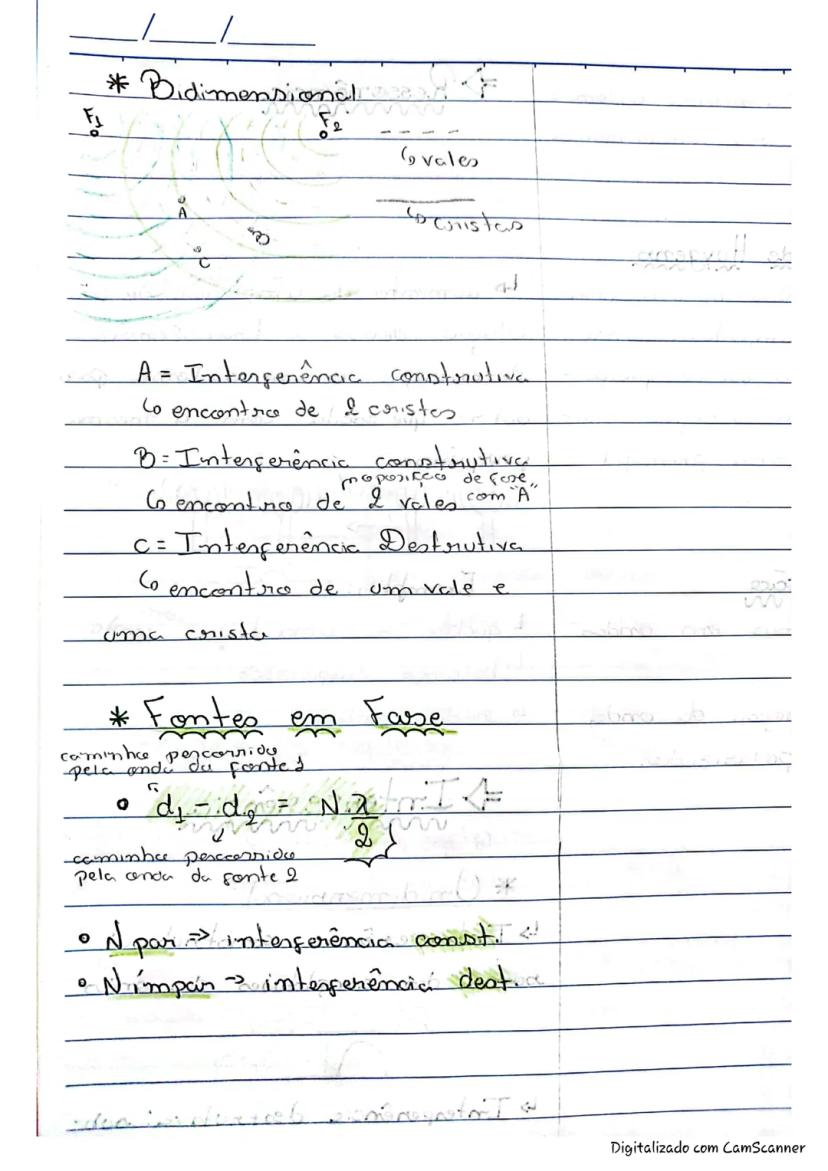 * Bidimensional
F1 F2
↳ vales
A
↳ cristas
B
C
A = Interferência construtiva
↳ encontro de 2 cristas
B = Interferência construtiva
oposição de fase
↳ encontro de 2 vales com "A"
C = Interferência Destrutiva
↳ encontro de um vale e
uma crista
* Fontes em Fase
caminho percorrido
pela onda da fonte 1
• d1 - d2 = N λ/2
caminho percorrido
pela onda da fonte 2
• N par => interferência const.
• N ímpar -> interferência dest.
Digitalizado com CamScanner